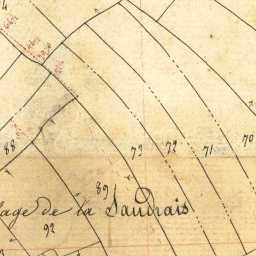 88
73
72
71
70
89
lage de la Saudrais
92